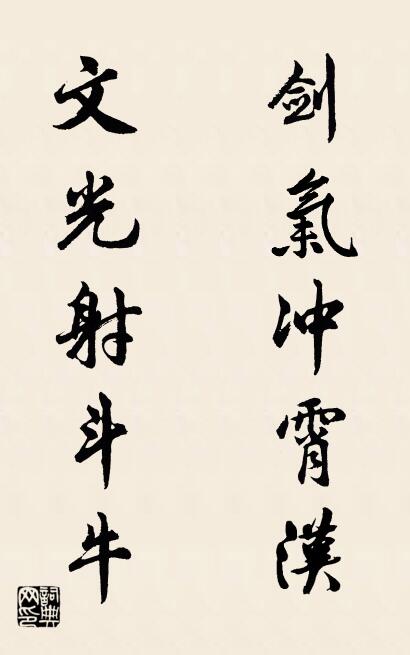 剑氣冲霄漢
文光射斗牛
詞典网印